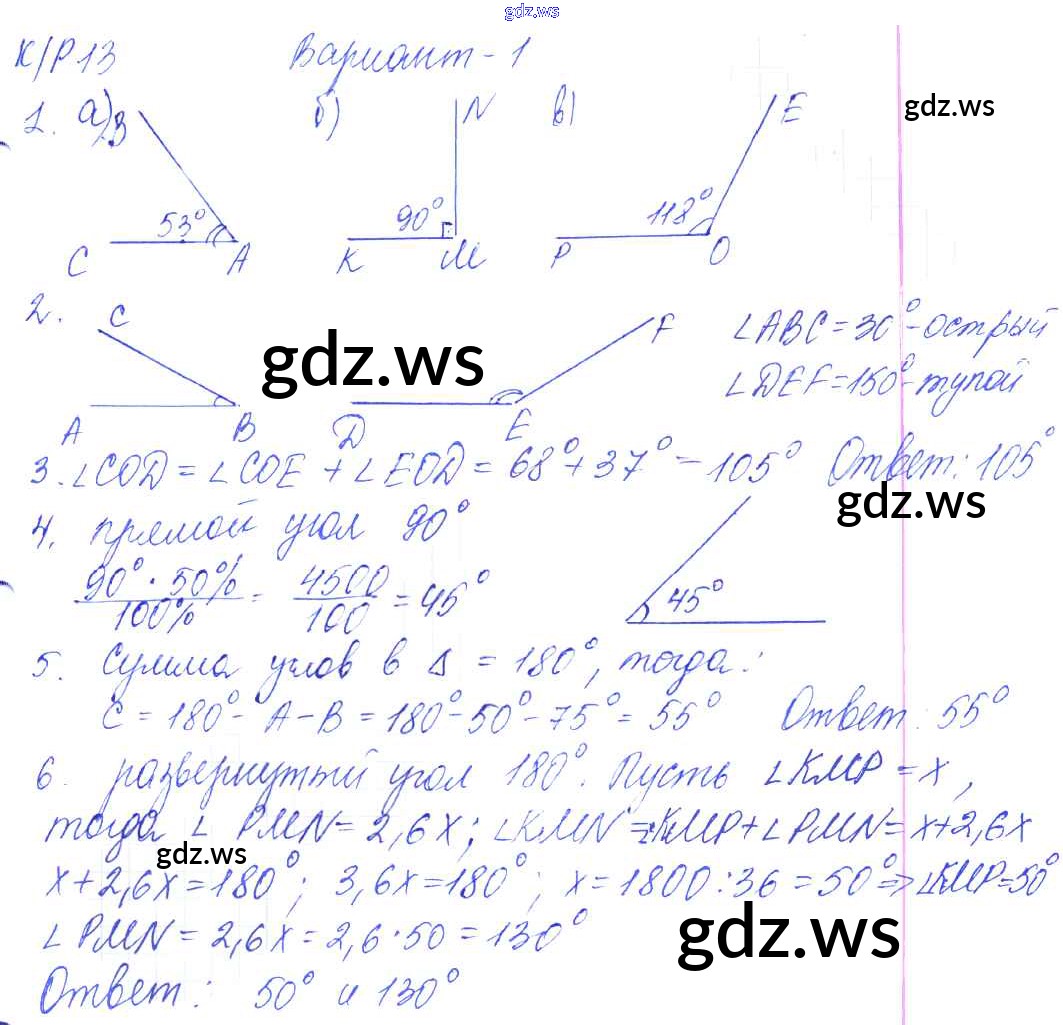 gdz.ws
К/Р 13 Вариант - 1
gdz.ws
1. а) B 53° C A б) N 90° K M в) E 118° P O
2. C A B F D E
∠ABC = 30° - острый
∠DEF = 150° - тупой
gdz.ws
3. ∠COD = ∠COE + ∠EOD = 68° + 37° = 105° Ответ: 105°
gdz.ws
4. прямой угол 90°
90° · 50% / 100% = 4500 / 100 = 45° 45°
5. Сумма углов в Δ = 180°, тогда:
C = 180° - A - B = 180° - 50° - 75° = 55° Ответ: 55°
6. развернутый угол 180°. Пусть ∠KMP = x,
тогда ∠ PMN = 2,6x; ∠KMN = ∠KMP + ∠PMN = x + 2,6x
gdz.ws
x + 2,6x = 180°; 3,6x = 180°; x = 1800 : 36 = 50° => ∠KMP = 50°
∠ PMN = 2,6x = 2,6 · 50 = 130°
gdz.ws
Ответ: 50° и 130°